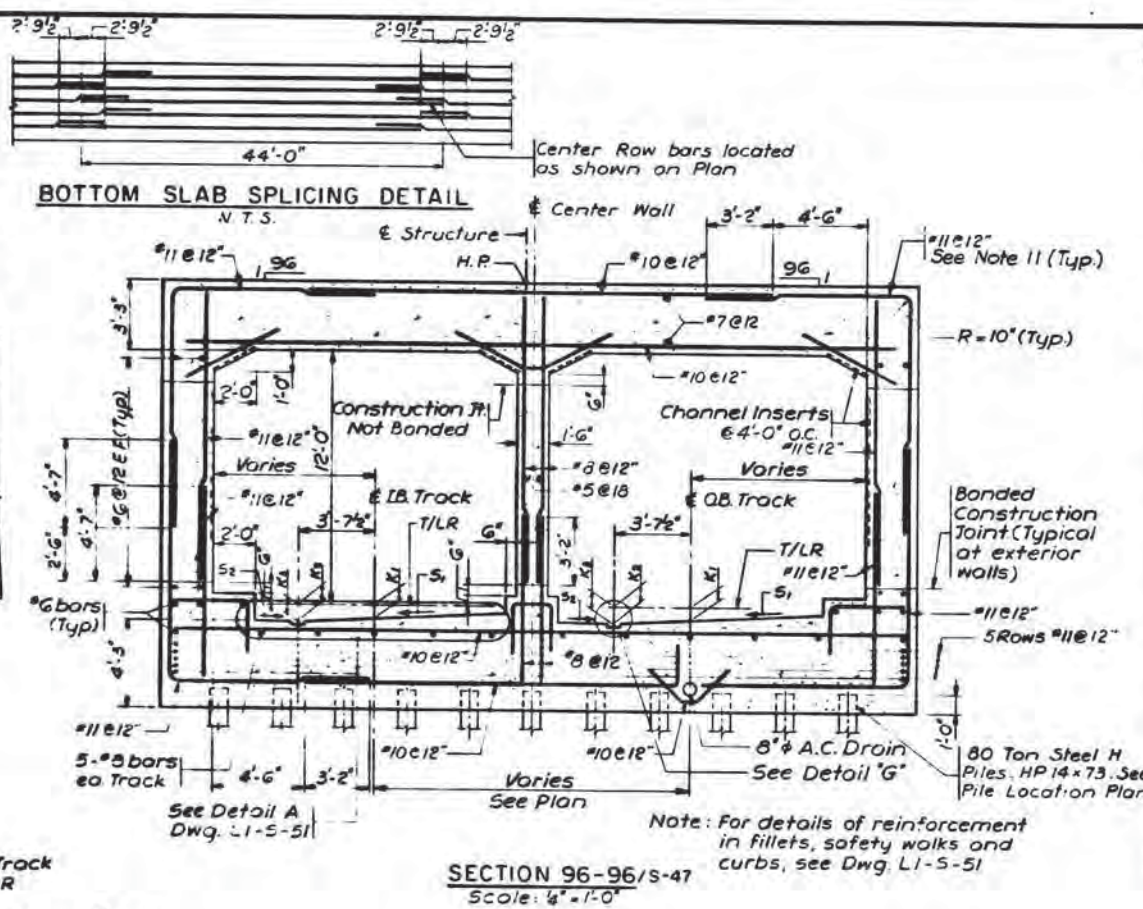 2'-9½" 2'-9½" 2'-9½" 2'-9½"
44'-0"
Center Row bars located
as shown on Plan
BOTTOM SLAB SPLICING DETAIL
N.T.S.
℄ Center Wall
℄ Structure
H.P.
3'-2" 4'-6"
#11@12"
See Note 11 (Typ.)
#11@12"
1 96
#10@12"
96 1
3'-3"
#7@12
R=10" (Typ.)
#10@12"
2'-0"
1'-0"
6"
Construction Jt.
Not Bonded
12'-0"
Channel Inserts
@4'-0" O.C.
#11@12"
#6@12 E.F. (Typ.)
#11@12"
1'-6"
Varies
#8@12"
#5@18
Varies
4'-7"
4'-7"
2'-6"
#11@12"
℄ I.B. Track
℄ O.B. Track
Bonded
Construction
Joint (Typical
at exterior
walls)
2'-0"
3'-7½"
T/LR
6"
6"
3'-2"
3'-7½"
T/LR
#11@12"
6"
S₂ K₂ K₃ K₁ S₁
S₂ K₂ K₃ K₁ S₁
#6 bars
(Typ)
#11@12"
5 Rows #11@12"
4'-3"
#10@12"
#8@12
1'-0"
#11@12"
5-#8 bars
ea Track
4'-6" 3'-2"
#10@12"
#10@12"
8"φ A.C. Drain
See Detail "G"
80 Ton Steel H
Piles. HP 14×73. See
Pile Location Plan
Varies
See Plan
See Detail A
Dwg. L1-S-51
Note: For details of reinforcement
in fillets, safety walks and
curbs, see Dwg. L1-S-51
Track
R
SECTION 96-96/S-47
Scale: ¼"=1'-0"